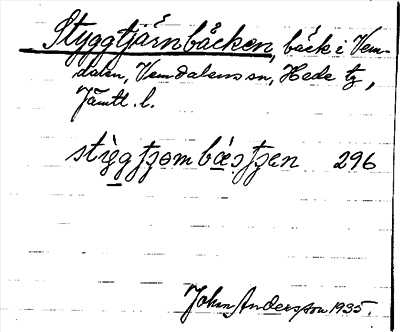 Styggtjärnbäcken, bäck i Vem-
dalen, Vemdalens sn, Hede tg,
Jämtl. l.
stig̀gtjom bæstjen 296
Johan Andersson 1935.